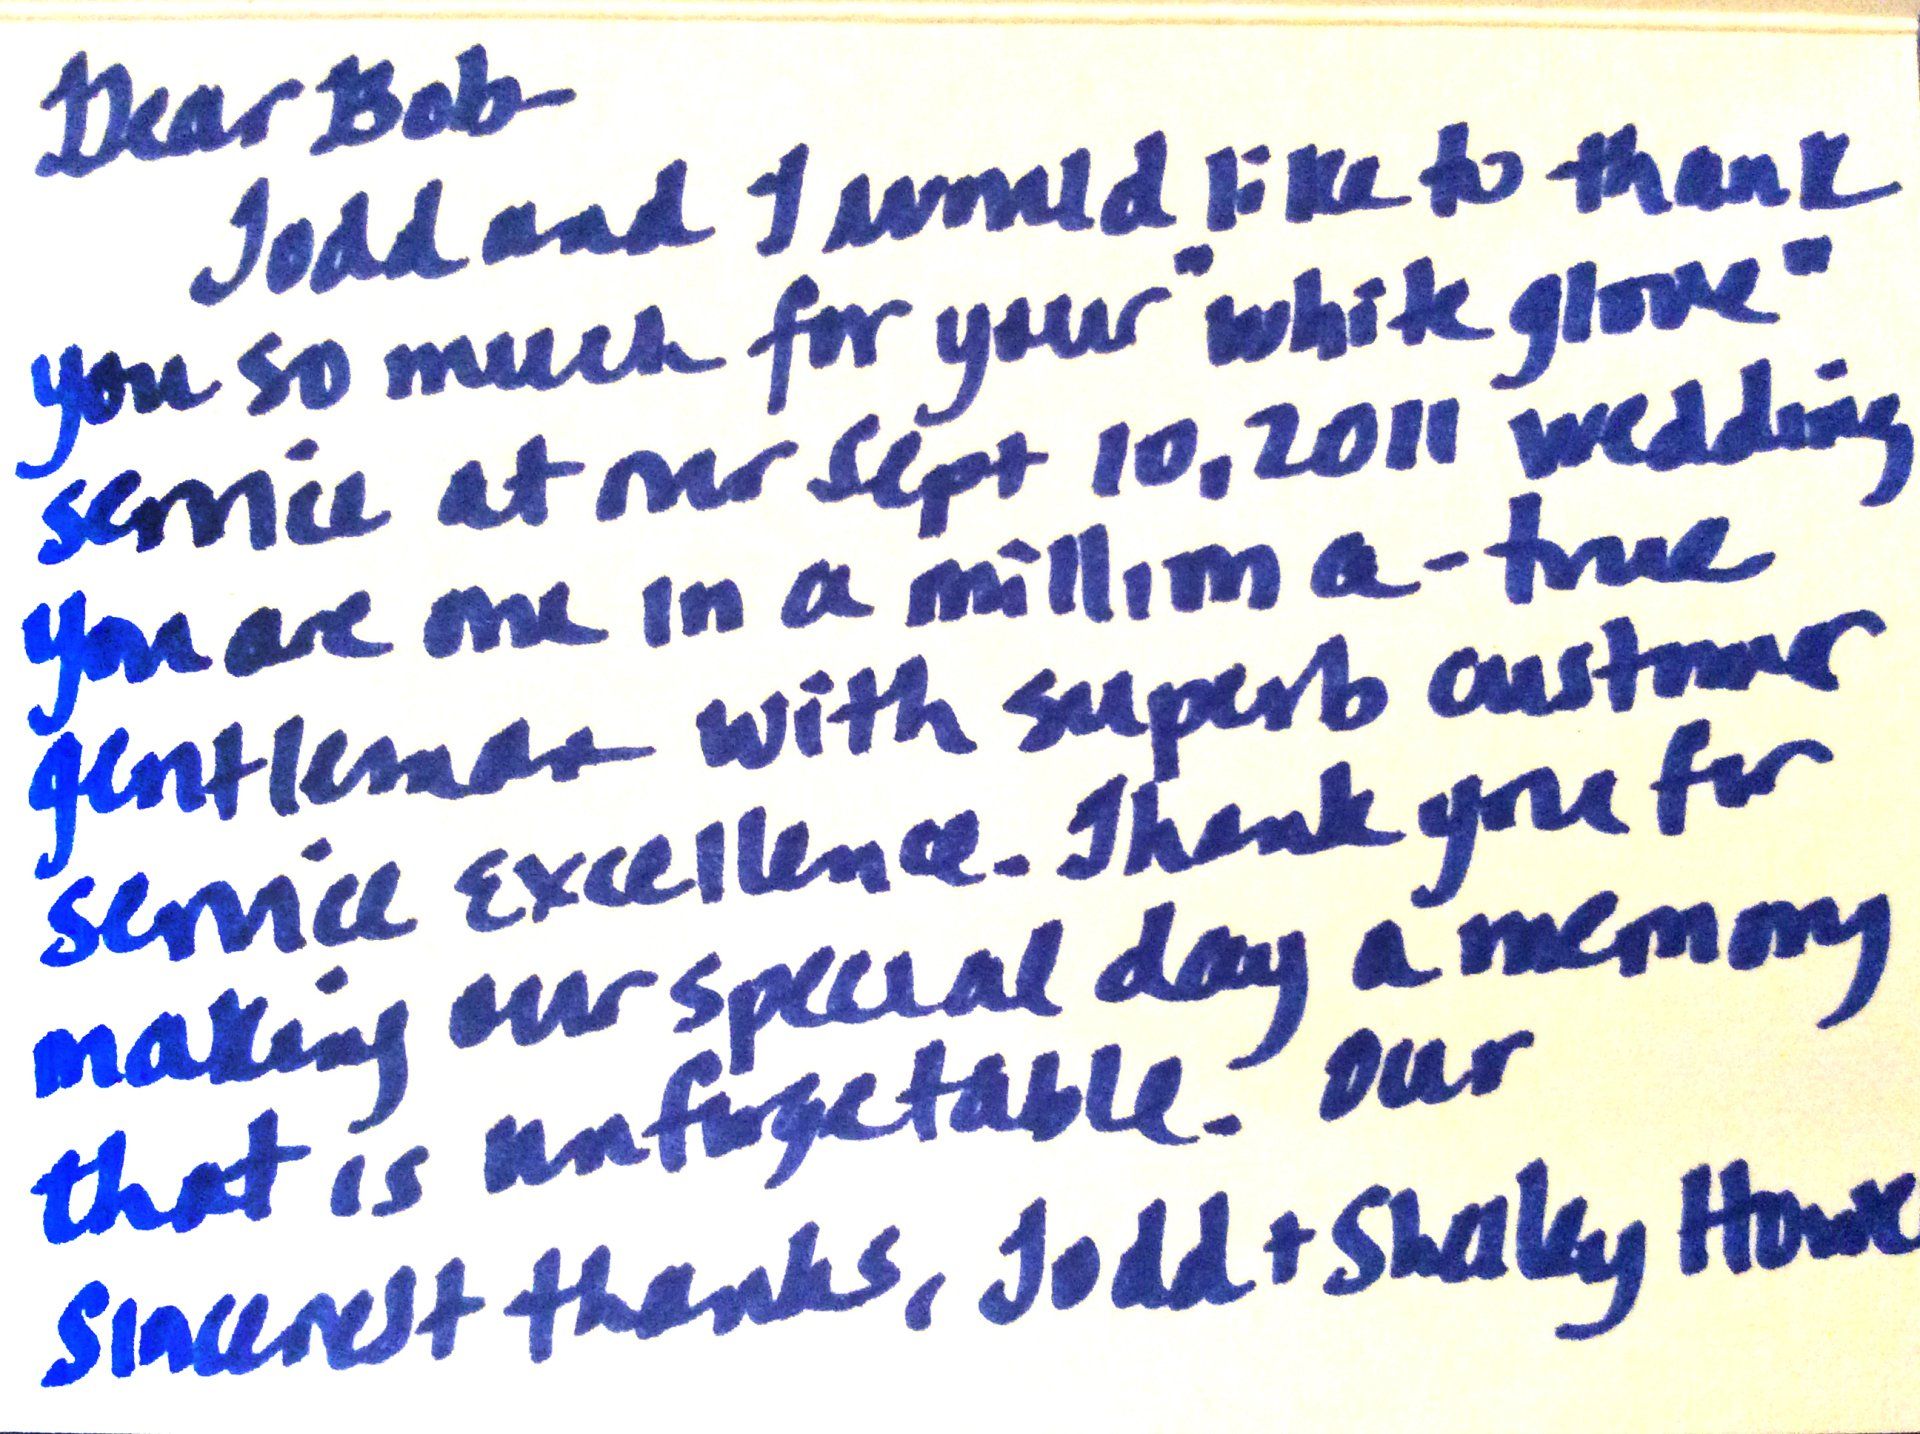 Dear Bob-
Todd and I would like to thank
you so much for your "white glove"
service at our Sept 10, 2011 wedding
you are one in a million a - true
gentleman with superb customer
service excellence. Thank you for
making our special day a memory
that is unforgetable. Our
Sincerest thanks, Todd + Shelley Howe